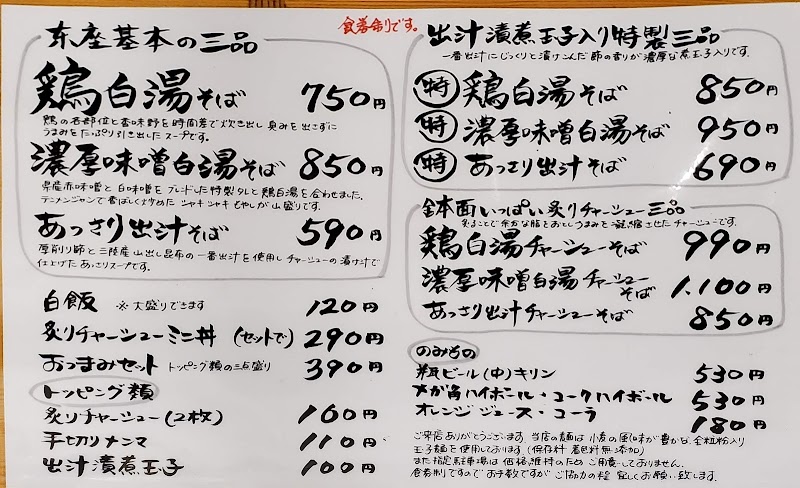 食券制です。
東座基本の三品
鶏白湯そば 750円
鶏の各部位と香味野を時間差で炊き出し臭みを出さずに
うまみをたっぷり引き出したスープです。
濃厚味噌白湯そば 850円
県産赤味噌と白味噌をブレンドした特製タレと鶏白湯を合わせました。
テンメンジャンで香ばしく炒めたシャキシャキもやしが山盛りです。
あっさり出汁そば 590円
厚削り節と三陸産山出し昆布の一番出汁を使用しチャーシューの漬け汁で
仕上げたあっさりスープです。
白飯 ※大盛りできます 120円
炙りチャーシューミニ丼 (セットで) 290円
おつまみセット トッピング類の三点盛り 390円
トッピング類
炙りチャーシュー(2枚) 160円
手切りメンマ 110円
出汁漬煮玉子 100円
出汁漬煮玉子入り特製三品
一番出汁にじっくりと漬けこんだ節の香りが濃厚な煮玉子入りです。
特 鶏白湯そば 850円
特 濃厚味噌白湯そば 950円
特 あっさり出汁そば 690円
鉢面いっぱい炙りチャーシュー三品
炙ることで余分な脂をおとしうまみを凝縮させたチャーシューです。
鶏白湯チャーシューそば 990円
濃厚味噌白湯チャーシューそば 1,100円
あっさり出汁チャーシューそば 850円
のみもの
瓶ビール(中)キリン 530円
メガ角ハイボール・コークハイボール 530円
オレンジジュース・コーラ 180円
ご来店ありがとうございます。当店の麺は小麦の風味が豊かな全粒粉入り
玉子麺を使用しております(保存料 着色料無添加)
また指定駐車場は価格維持のためご用意しておりません。
食券制ですのでお手数ですがご協力の程宜しくお願い致します。